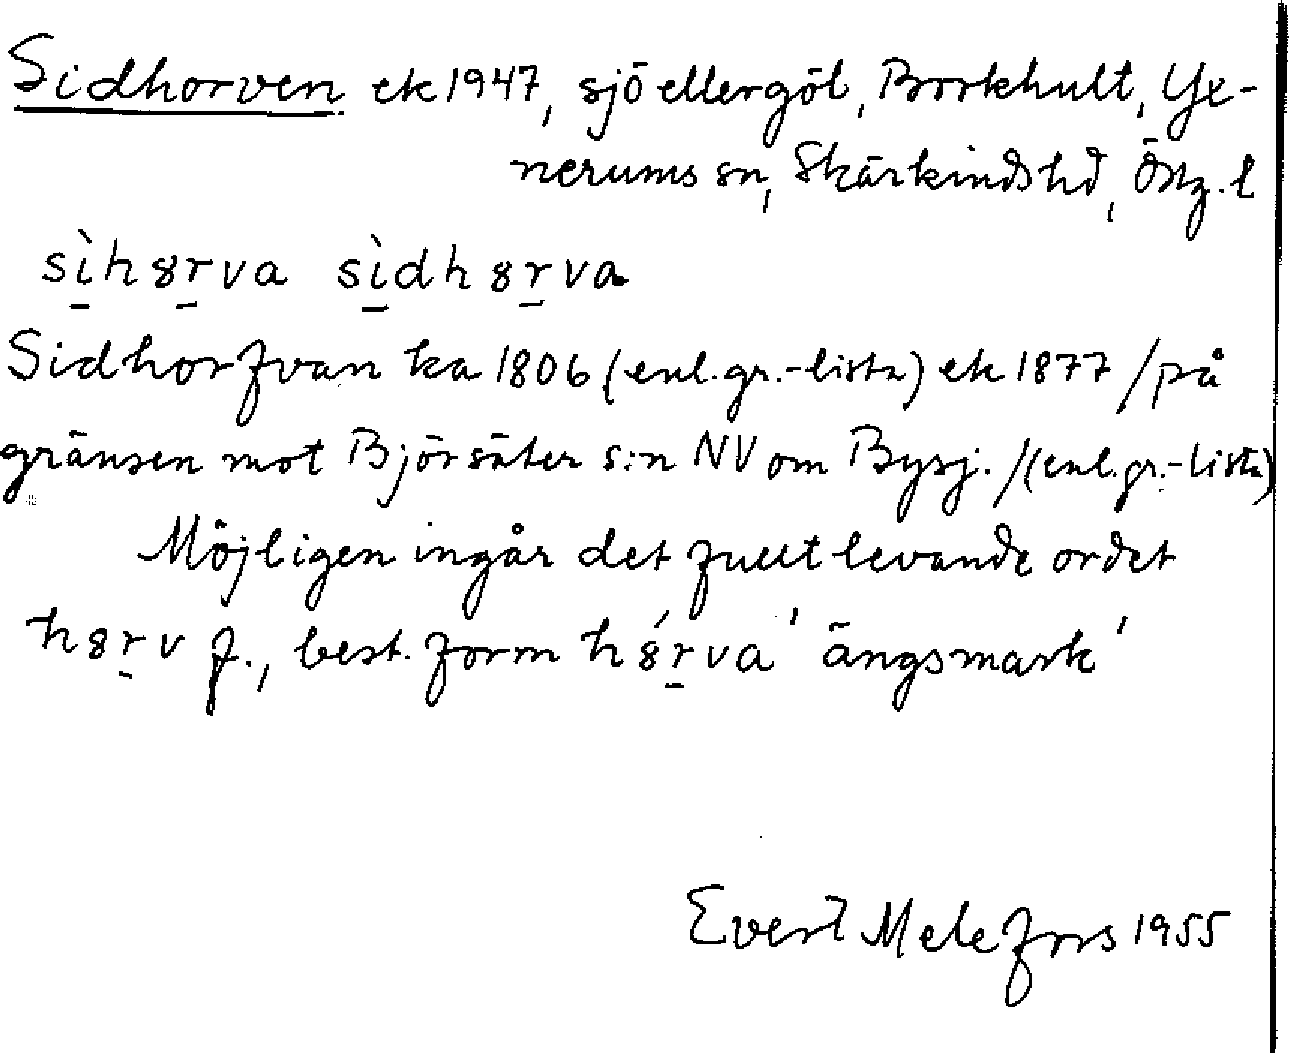 Sidhorven ek 1947, sjö eller göl, Borkhult, Yx-
nerums sn, Skärkinds hd, Östg. l
sìh8rva sìdh8rva
Sidhorfvan ka 1806 (enl. gr.-lista) ek 1877 /på
gränsen mot Björsäter s:n NV om Bysj./(enl. gr.-lista)
Möjligen ingår det fullt levande ordet
h8rv f., best. form h8́rva 'ängsmark'
Evert Melefors 1955